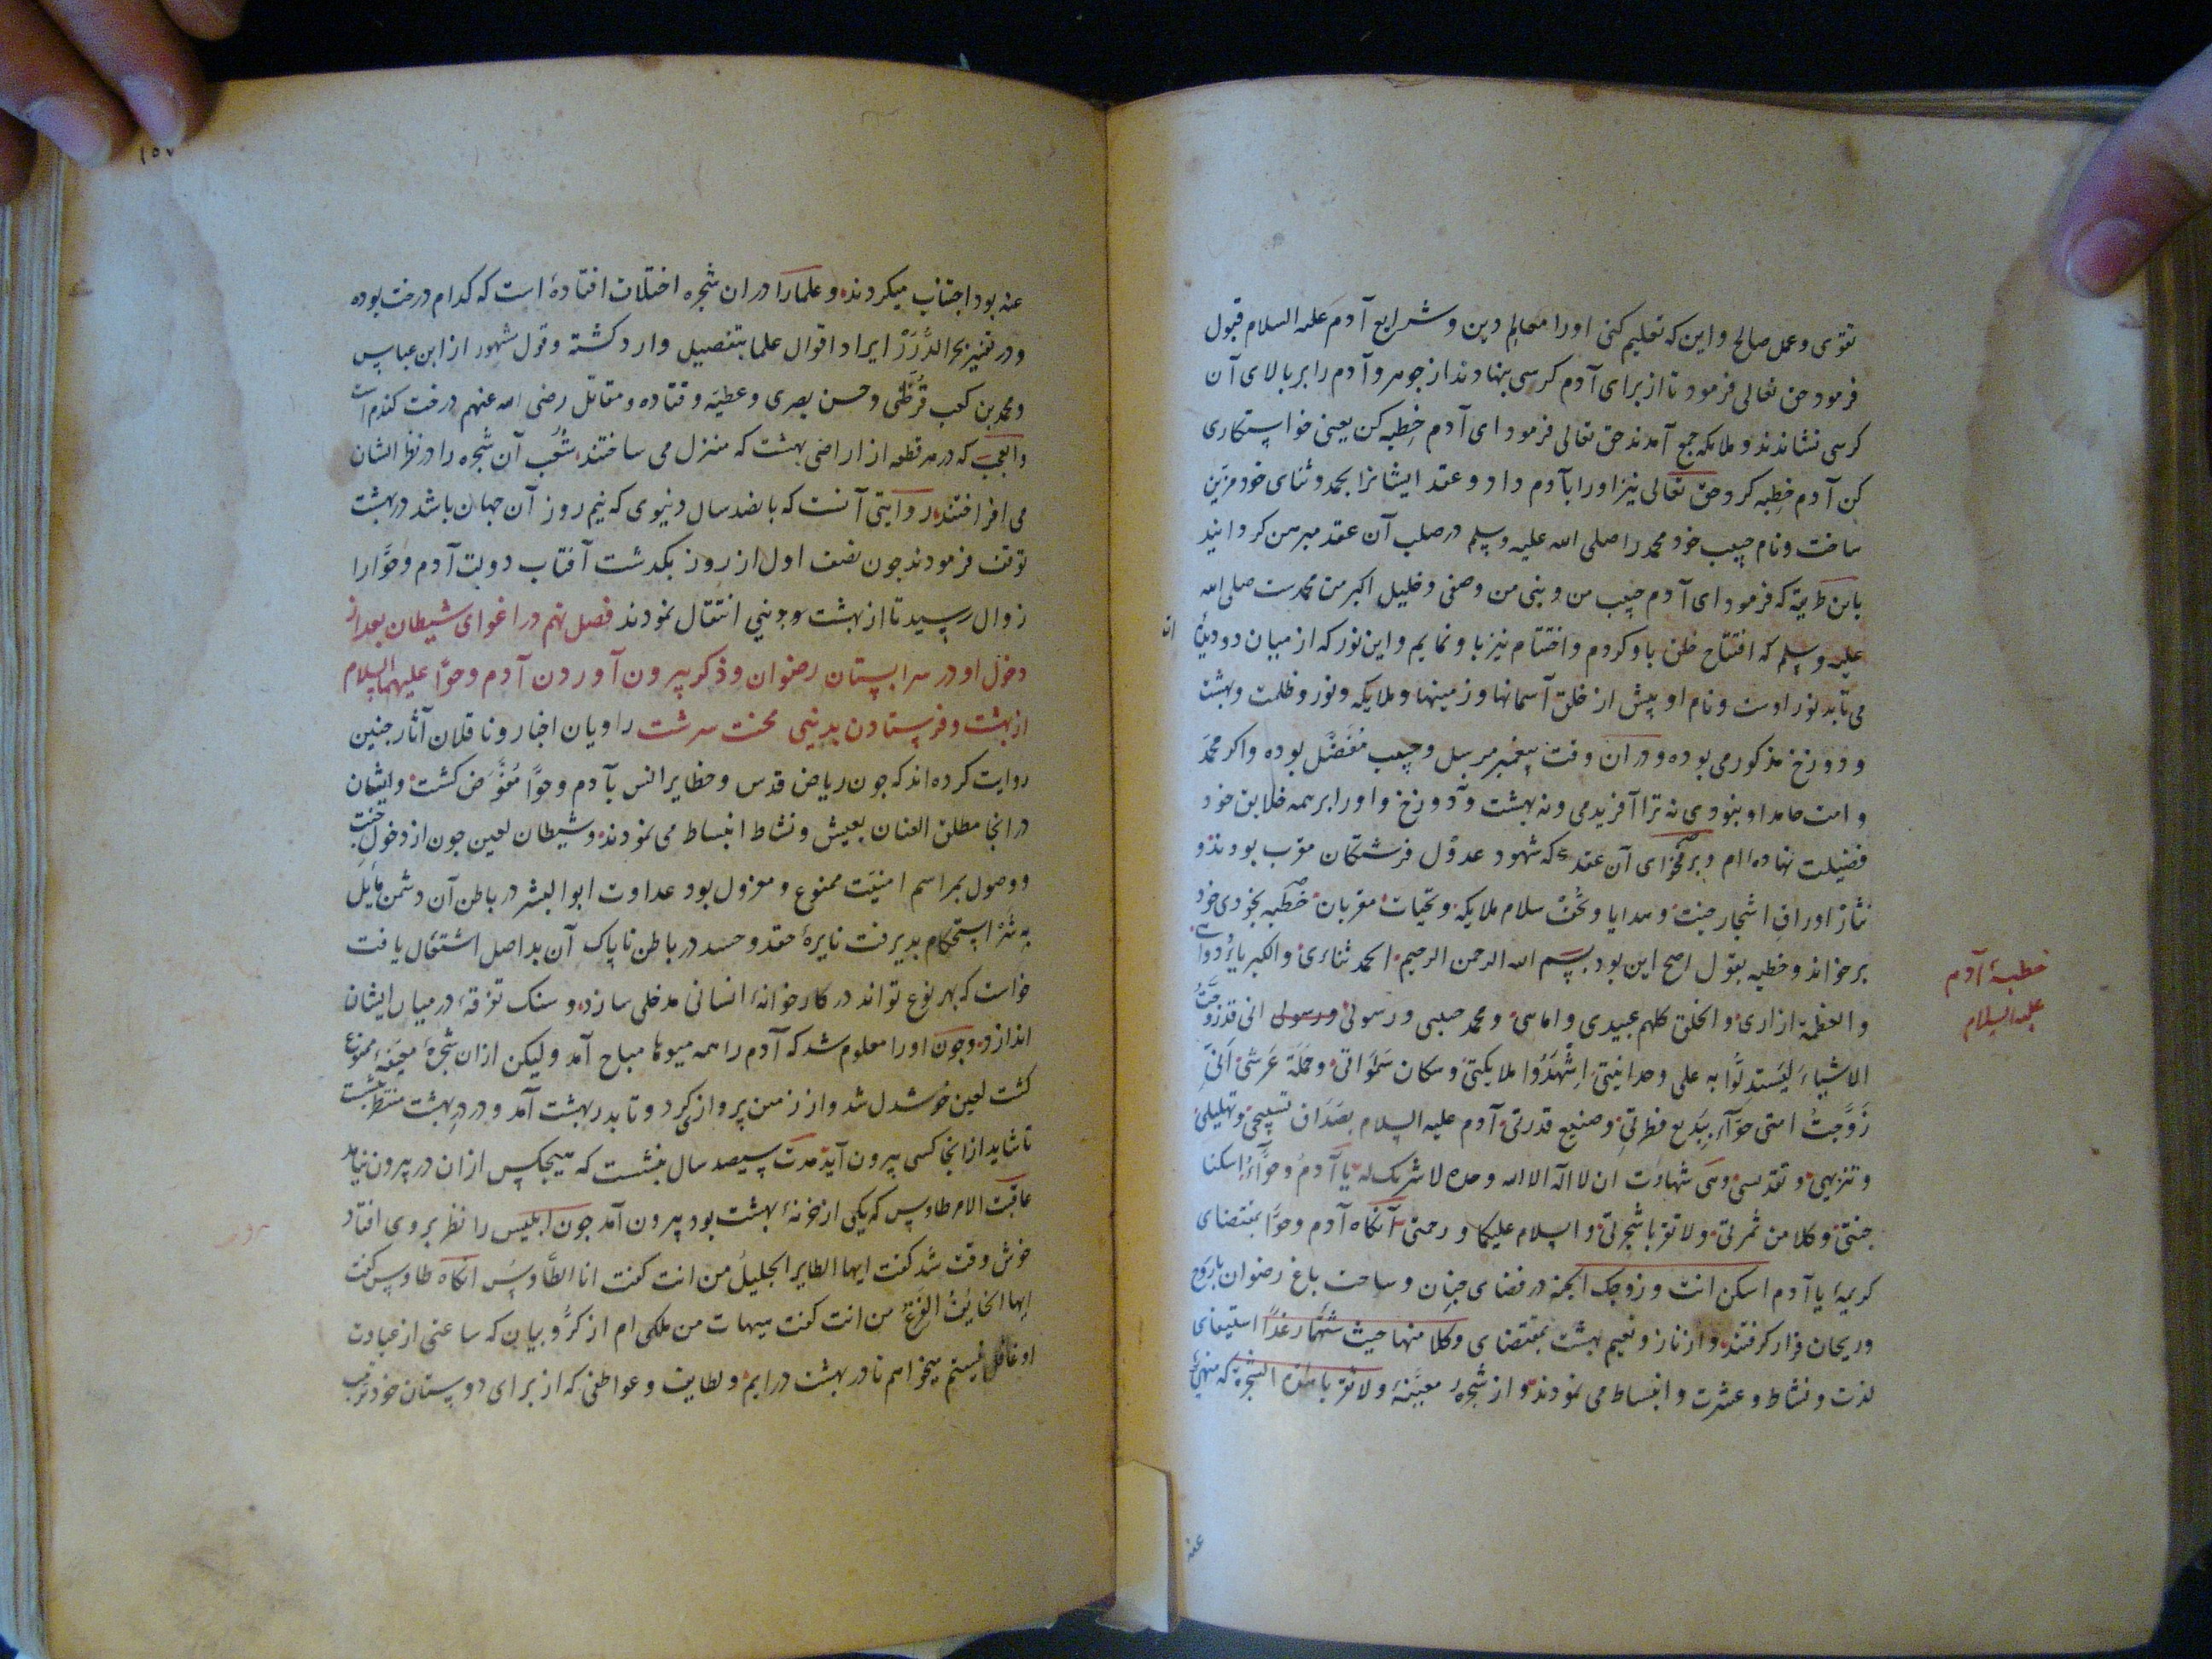 تقوی و عمل صالح و این که تعلیم کنی اورا معالم دین و شرایع آدم علیه السلام قبول
فرمود حق تعالی فرمود تا از برای آدم کرسی بنهادند از جوهر و آدم را بر بالای آن
کرسی نشاندند و ملایکه جمع آمدند حق تعالی فرمود ای آدم خطبه کن یعنی خواستکاری
کن آدم خطبه کرد حق تعالی نیز اورا بآدم داد و عقد ایشانرا بحمد و ثنای خود مزین
ساخت و نام حبیب خود محمد را صلی الله علیه وسلم در صلب آن عقد مبرهن کردانید
باین طریقه که فرمود ای آدم حبیب من و نبی من و صفی و خلیل اکبر من محمدست صلی الله
علیه وسلم که افتتاح خلق باو کردم و اختتام نیز باو نمایم و این نور که از میان دو دیدۀ
می تابد نور اوست و نام او پیش از خلق آسمانها و زمینها و ملایکه و نور و ظلمت و بهشت
و دوزخ مذکور می بوده و در ان وقت پیغمبر مرسل و حبیب مفضل بوده و اکر محمد
و امت حامد او نبودی نه ترا آفریدمی و نه بهشت و نه دوزخ و اورا بر همه خلایق خود
فضیلت نهاده ام و بر فحوای آن عقد که شهود عدول فرشتکان مقرب بودند و
نثار اوراق اشجار جنت و هدایا و تحف سلام ملایکه و تحیات مقربان خطبه بخودی خود
بر خواند و خطبه بقول اصح این بود بسم الله الرحمن الرحیم الحمد ثناءی و الکبریاء ردوائی
و العظمة ازاری و الخلق کلهم عبیدی و امایی و محمد حبیبی و رسولی و رسول انی قد زوجت
الاشیاء لیستدلوا به علی وحدانیتی اشهدوا ملایکتی و سکان سمواتی و حملة عرشی انی
زوجت امتی حوآء ببدیع فطرتی و صنیع قدرتی آدم علیه السلام بصداق تسبیحی و تهلیلی
و تنزیهی و تقدیسی وهی شهادت ان لا اله الا الله وحده لا شریک له یا آدم و حوآء اسکنا
جنتی و کلا من ثمرتی و لا تقربا شجرتی و السلام علیکما و رحمتی آنکاه آدم و حوا بمقتضای
کریمۀ یا آدم اسکن انت و زوجک الجنه در فضای جنان و ساحت باغ رضوان با روح
و ریحان قرار کرفتند و از ناز و نعیم بهشت بمقتضای و کلا منها حیث شئتما رغدا استیفای
لذت و نشاط و عشرت و انبساط می نمودند و از شجرۀ معینۀ و لا تقربا هذه الشجره که منهی
عنه
خطبۀ آدم
علیه السلام
۱۵۷
عنه بود اجتناب میکردند و علمارا در ان شجره اختلاف افتادۀ است که کدام درخت بوده
و در تفسیر بحر الدرر ایراد اقوال علما بتفصیل وارد کشته و قول مشهور از ابن عباس
و محمد بن کعب قرظی و حسن بصری و عطیه و قتاده و مقاتل رضی الله عنهم درخت کندم است
و العجب که در هر قطعه از اراضی بهشت که منزل می ساختند شعب آن شجره را در نظر ایشان
می افراختند روایتی آنست که بانصد سال دنیوی که نیم روز آن جهان باشد در بهشت
توقف فرمودند جون نصف اول از روز بکذشت آفتاب دولت آدم و حوا را
زوال رسید تا از بهشت بدنیی انتقال نمودند فصل نهم در اغوای شیطان بعد از
دخول او در سرابستان رضوان و ذکر بیرون آوردن آدم و حوا علیهما السلام
از بهشت و فرستادن بدنیی محنت سرشت راویان اخبار و ناقلان آثار جنین
روایت کرده اند که جون ریاض قدس و حظایر انس بآدم و حوا مفوض کشت و ایشان
در انجا مطلق العنان بعیش و نشاط انبساط می نمودند و شیطان لعین جون از دخول جنت
و وصول بمراسم امنیت ممنوع و معزول بود عداوت ابو البشر در باطن آن دشمن
استحکام بدیرفت نایرۀ حقد و حسد در باطن ناپاک آن بد اصل اشتعال یافت
خواست که بهر نوع تواند در کارخوانۀ انسانی مدخلی سازد و سنک تفرقۀ در میان ایشان
اندازد و جون اورا معلوم شد که آدم را همه میوها مباح آمد و لیکن از ان شجرۀ معینه ممنوع
کشت لعین خوشدل شد و از زمین پرواز کرد و تا بدر بهشت آمد و در در بهشت منتظر بنشست
تا شاید از انجا کسی بیرون آید مدت سیصد سال بنشست که هیجکس از ان در بیرون نیامد
عاقبت الامر طاوس که یکی از خزنۀ بهشت بود بیرون آمد جون ابلیس را نظر بر وی افتاد
خوش وقت شد کفت ایها الطایر الجلیل من انت کفت انا الطاوس انکاه طاوس کفت
ایها الخایف الفزع من انت کفت هیهات من ملکی ام از کروبیان که ساعتی از عبادت
او غافل نیستم میخواهم تا در بهشت درایم و لطایف و عواطفی که از برای دوستان خود ترتیب